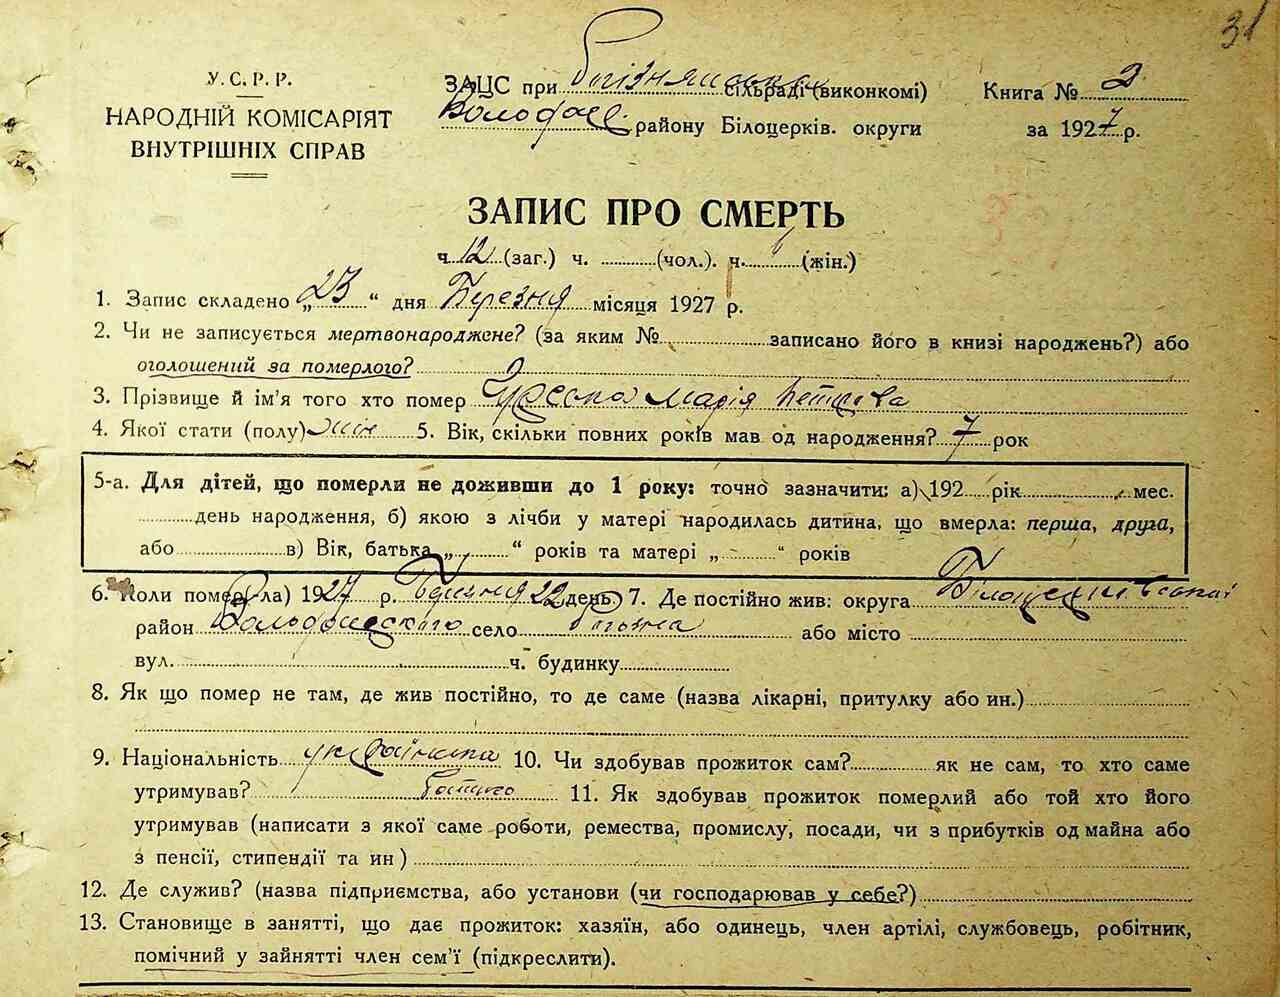 31
У. С. Р. Р.
НАРОДНІЙ КОМІСАРІЯТ
ВНУТРІШНІХ СПРАВ
ЗАЦС при сільраді (виконкомі)
району Білоцерків. округи
Книга № 2
за 1927 р.
ЗАПИС ПРО СМЕРТЬ
ч. 12 (заг.) ч. (чол.). ч. 6 (жін.)
1. Запис складено „23“ дня Березня місяця 1927 р.
2. Чи не записується мертвонароджене? (за яким № записано його в книзі народжень?) або
оголошений за померлого?
3. Прізвище й ім'я того хто помер Марія Петрова
4. Якої стати (полу) жін 5. Вік, скільки повних років мав од народження? 7 рок
5-а. Для дітей, що померли не доживши до 1 року: точно зазначити: а) 192 рік мес.
день народження, б) якою з лічби у матері народилась дитина, що вмерла: перша, друга,
або в) Вік, батька „ “ років та матері „ “ років
6. Коли помер(-ла) 1927 р. Березня 22 день 7. Де постійно жив: округа Білоцерківської
район село або місто
вул. ч. будинку
8. Як що помер не там, де жив постійно, то де саме (назва лікарні, притулку або ин.)
9. Національність українка 10. Чи здобував прожиток сам? як не сам, то хто саме
утримував? батько 11. Як здобував прожиток померлий або той хто його
утримував (написати з якої саме роботи, ремества, промислу, посади, чи з прибутків од майна або
з пенсії, стипендії та ин )
12. Де служив? (назва підприємства, або установи (чи господарював у себе?)
13. Становище в занятті, що дає прожиток: хазяїн, або одинець, член артілі, службовець, робітник,
помічний у зайнятті член сем'ї (підкреслити).